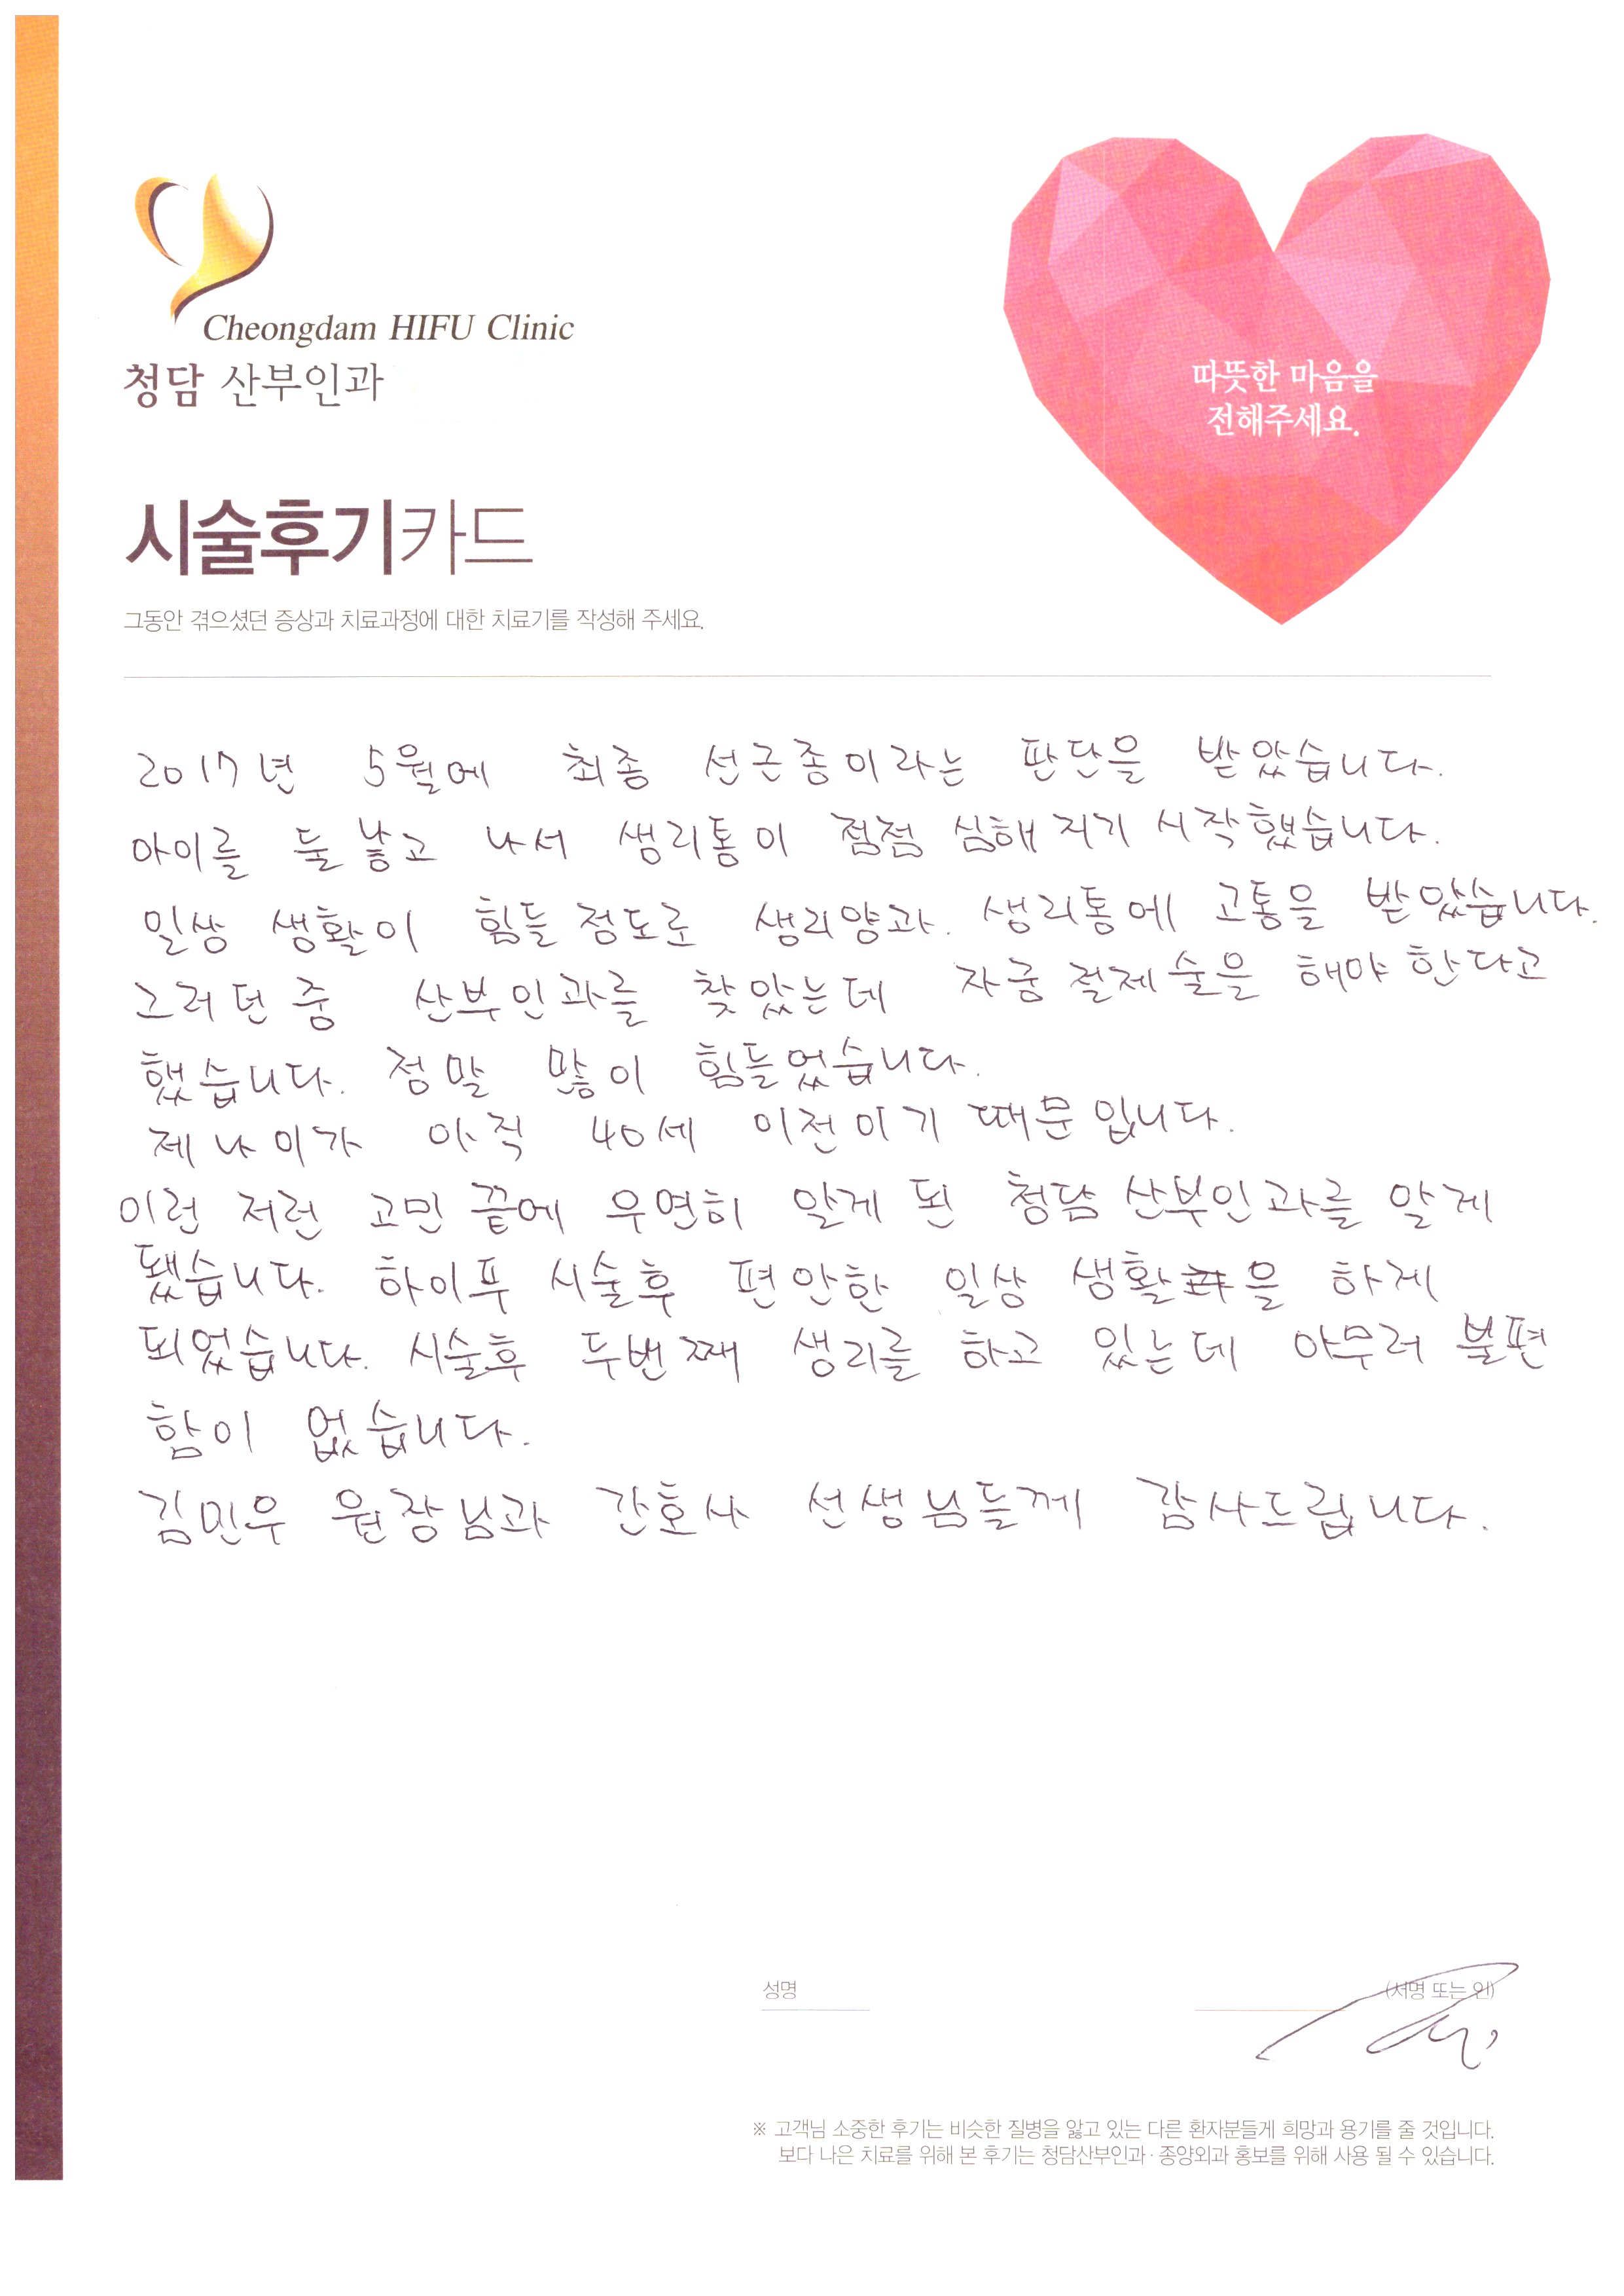 Cheongdam HIFU Clinic
청담 산부인과
따뜻한 마음을
전해주세요.
시술후기카드
그동안 겪으셨던 증상과 치료과정에 대한 치료기를 작성해 주세요.
2017년 5월에 최종 선근종이라는 판단을 받았습니다.
아이를 둘 낳고 나서 생리통이 점점 심해지기 시작했습니다.
일상 생활이 힘들 정도로 생리양과. 생리통에 고통을 받았습니다.
그러던 중 산부인과를 찾았는데 자궁 절제술을 해야 한다고
했습니다. 정말 많이 힘들었습니다.
제 나이가 아직 40세 이전이기 때문입니다.
이런 저런 고민 끝에 우연히 알게 된 청담 산부인과를 알게
됐습니다. 하이푸 시술후 편안한 일상 생활을 하게
되었습니다. 시술후 두번째 생리를 하고 있는데 아무러 불편
함이 없습니다.
김민우 원장님과 간호사 선생님들께 감사드립니다.
성명 (서명 또는 인)
※ 고객님 소중한 후기는 비슷한 질병을 앓고 있는 다른 환자분들게 희망과 용기를 줄 것입니다.
보다 나은 치료를 위해 본 후기는 청담산부인과·종양외과 홍보를 위해 사용 될 수 있습니다.